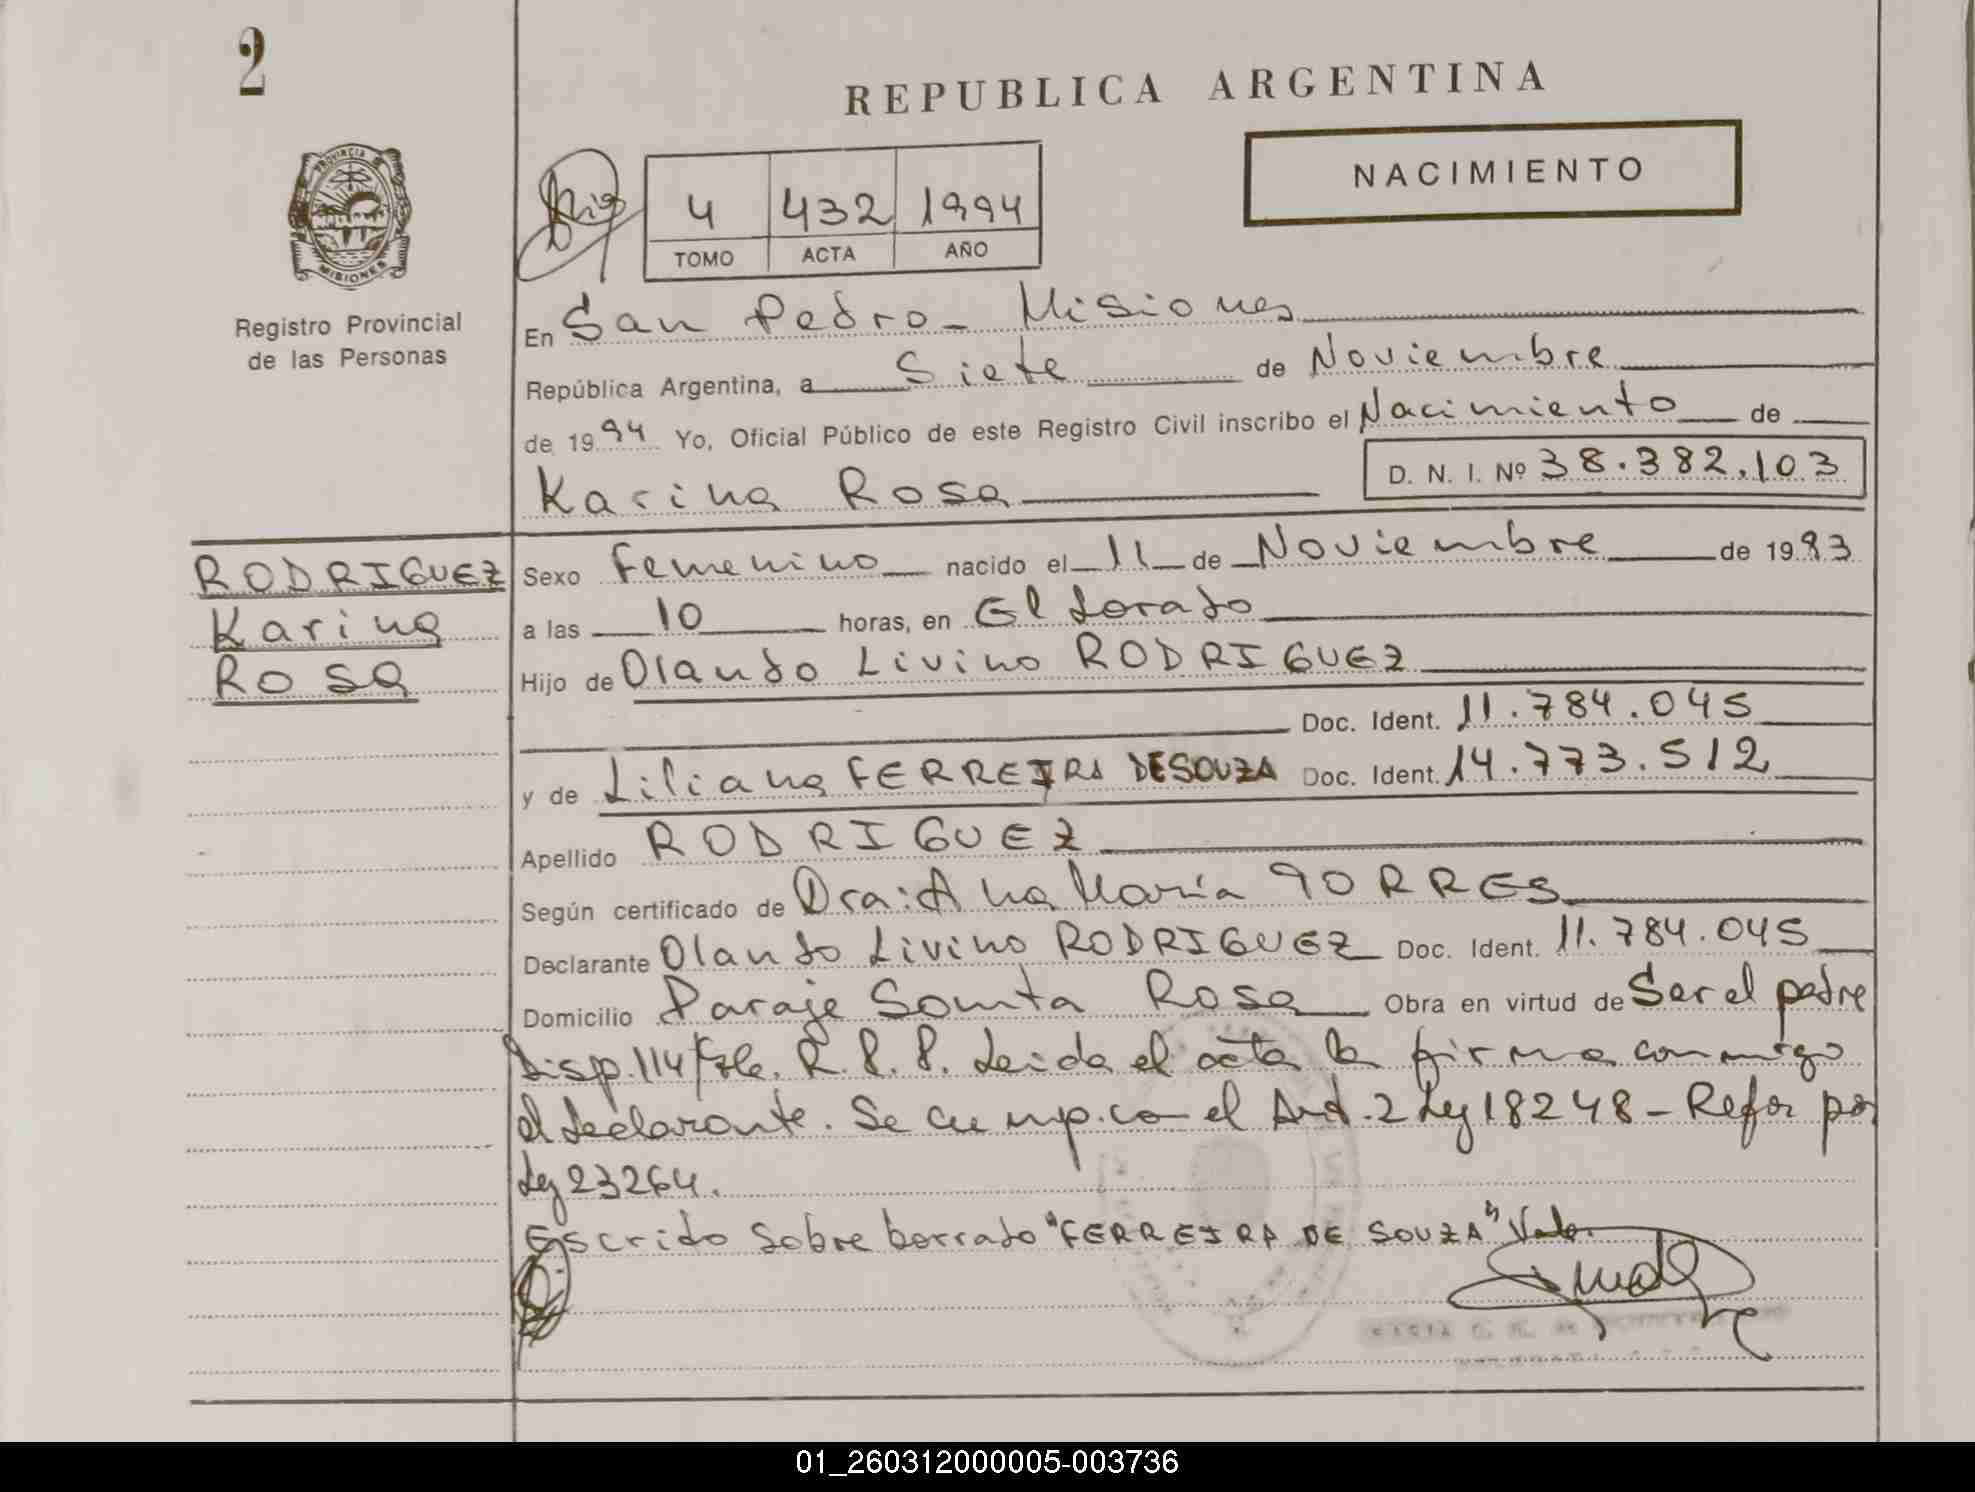 2
REPUBLICA ARGENTINA
NACIMIENTO
PROVINCIA DE
MISIONES
Registro Provincial
de las Personas
4 432 1994
TOMO ACTA AÑO
En San Pedro - Misiones
República Argentina, a Siete de Noviembre
de 1994 Yo, Oficial Público de este Registro Civil inscribo el Nacimiento de
Karina Rosa D. N. I. Nº 38.382.103
RODRIGUEZ
Karina
Rosa
Sexo Femenino nacido el 11 de Noviembre de 1993
a las 10 horas, en Eldorado
Hijo de Olando Livino RODRIGUEZ
Doc. Ident. 11.784.045
y de Liliana FERREIRA DE SOUZA Doc. Ident. 14.773.512
Apellido RODRIGUEZ
Según certificado de Dra: Ana María TORRES
Declarante Olando Livino RODRIGUEZ Doc. Ident. 11.784.045
Domicilio Paraje Santa Rosa Obra en virtud de Ser el padre
Disp. 114 R.P.P. Leida el acta la firma conmigo
el declarante. Se cump. con el Art. 2 Ley 18248 - Refor por
Ley 23264.
Escrito sobre borrado "FERREIRA DE SOUZA" Vale.
01_260312000005-003736